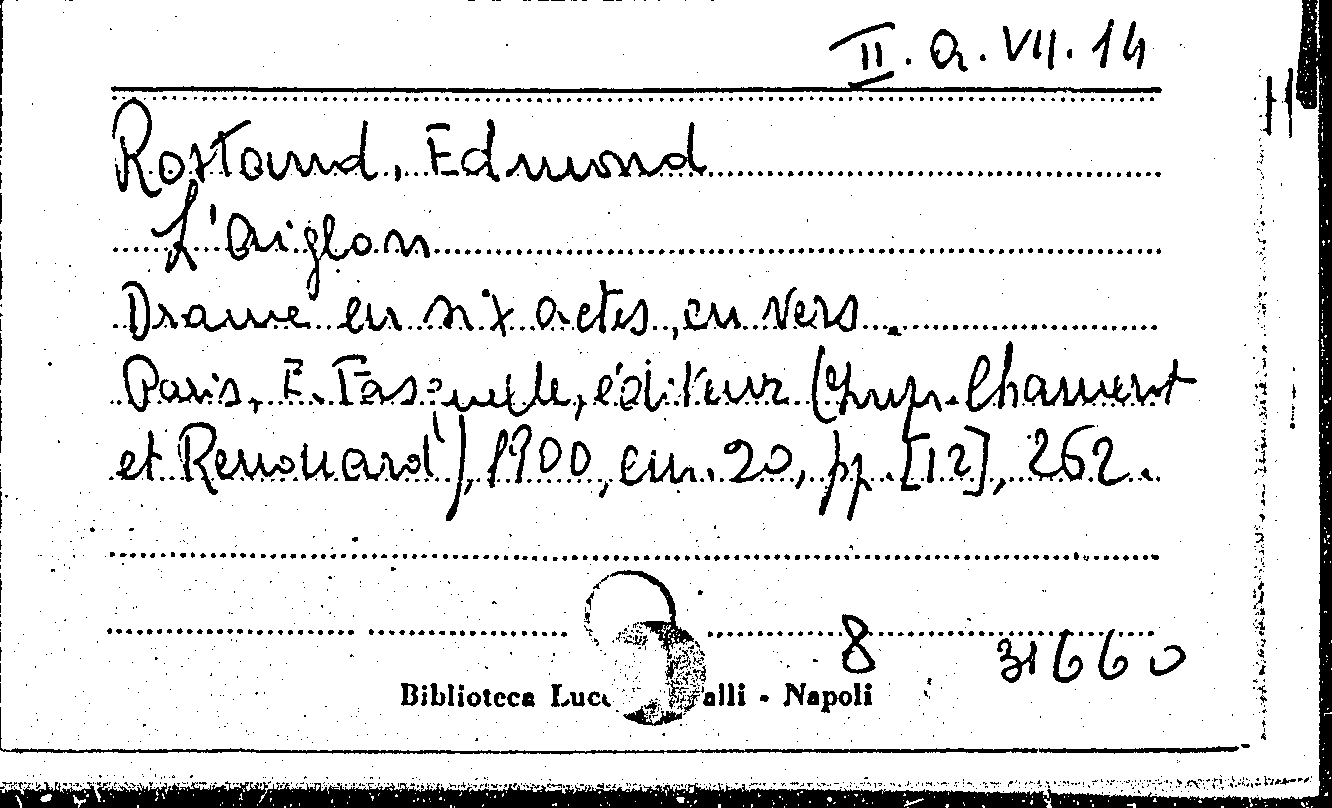 II. a. VII. 14
Rostand, Edmond
L'Aiglon
Drame en six actes, en vers.
Paris, E. Fasquelle, éditeur (Imp. Chamerot
et Renouard), 1900, cm. 20, pp. [12], 262.
8 31660
Biblioteca Lucc alli - Napoli